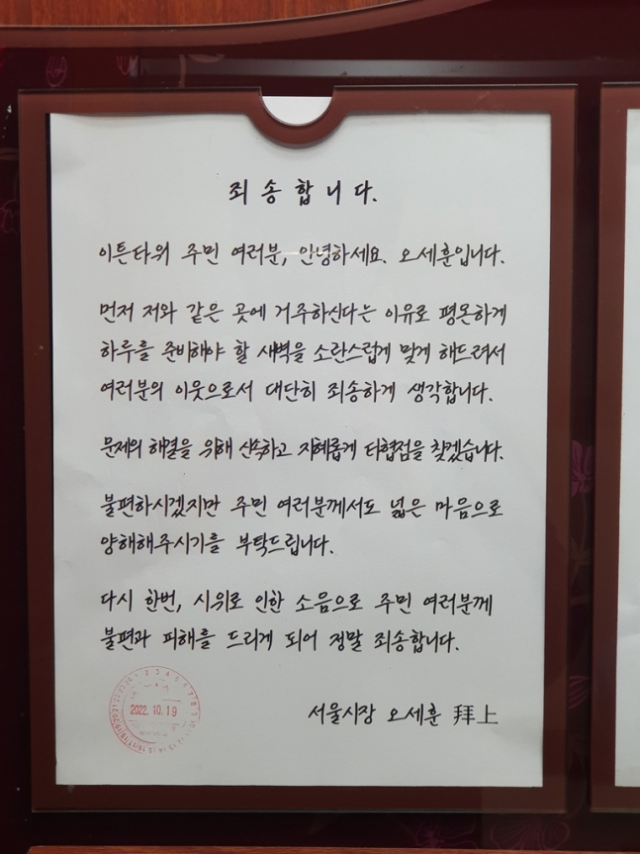 죄송합니다.
이튼타워 주민 여러분, 안녕하세요. 오세훈입니다.
먼저 저와 같은 곳에 거주하신다는 이유로 평온하게
하루를 준비해야 할 새벽을 소란스럽게 맞게 해드려서
여러분의 이웃으로서 대단히 죄송하게 생각합니다.
문제의 해결을 위해 신속하고 지혜롭게 타협점을 찾겠습니다.
불편하시겠지만 주민 여러분께서도 넓은 마음으로
양해해주시기를 부탁드립니다.
다시 한번, 시위로 인한 소음으로 주민 여러분께
불편과 피해를 드리게 되어 정말 죄송합니다.
2022.10.19
서울시장 오세훈 拜上